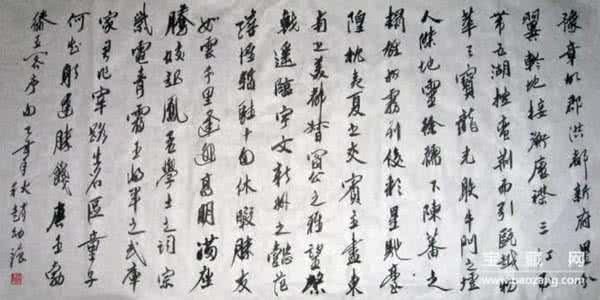 豫章故郡洪都新府星分
翼軫地接衡廬襟三江
帶五湖控蠻荊而引甌越物
華天寶龍光射牛斗之墟
人傑地靈徐孺下陳蕃之
榻雄州霧列俊彩星馳臺
隍枕夷夏之交賓主盡東
南之美都督閻公之雅望棨
戟遙臨宇文新州之懿範
襜帷暫駐十旬休暇勝友
如雲千里逢迎高朋滿座
騰蛟起鳳孟學士之詞宗
紫電青霜王將軍之武庫
家君作宰路出名區童子
何知躬逢勝餞 唐王勃
滕王閣序句 年秋 趙幼
baozang.com